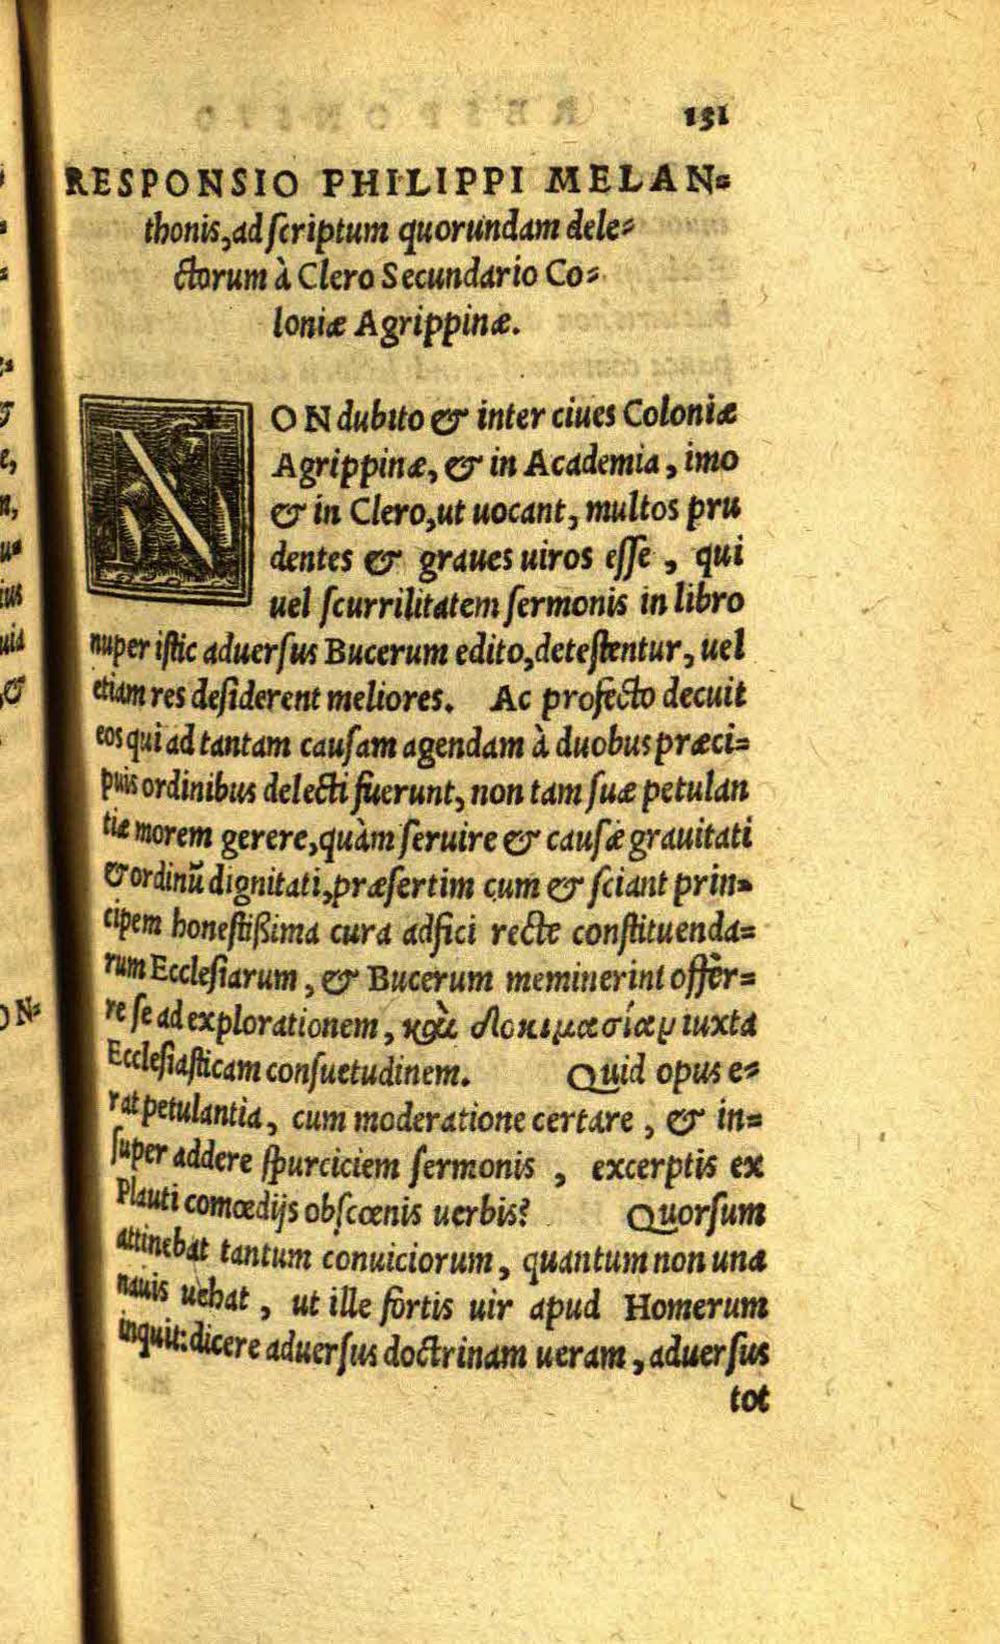 151
RESPONSIO PHILIPPI MELAN=
thonis, ad scriptum quorundam dele=
ctorum à Clero Secundario Co=
loniæ Agrippinæ.
NON dubito & inter ciues Coloniæ
Agrippinæ, & in Academia, imo
& in Clero, ut uocant, multos pru
dentes & graues uiros esse, qui
uel scurrilitatem sermonis in libro
nuper istic aduersus Bucerum edito, detestentur, uel
etiam res desiderent meliores. Ac profecto decuit
eos qui ad tantam causam agendam à duobus præci=
puis ordinibus delecti fuerunt, non tam suæ petulan
tiæ morem gerere, quàm seruire & causæ grauitati
& ordinũ dignitati, præsertim cum & sciant prin=
cipem honestißima cura adfici recte constituenda=
rum Ecclesiarum, & Bucerum meminerint offer=
re se ad explorationem, καὶ δοκιμασίαν iuxta
Ecclesiasticam consuetudinem. Quid opus e=
rat petulantia, cum moderatione certare, & in=
super addere spurciciem sermonis, excerptis ex
Plauti comœdijs obscœnis uerbis? Quorsum
attinebat tantum conuiciorum, quantum non una
nauis uehat, ut ille fortis uir apud Homerum
inquit: dicere aduersus doctrinam ueram, aduersus
tot